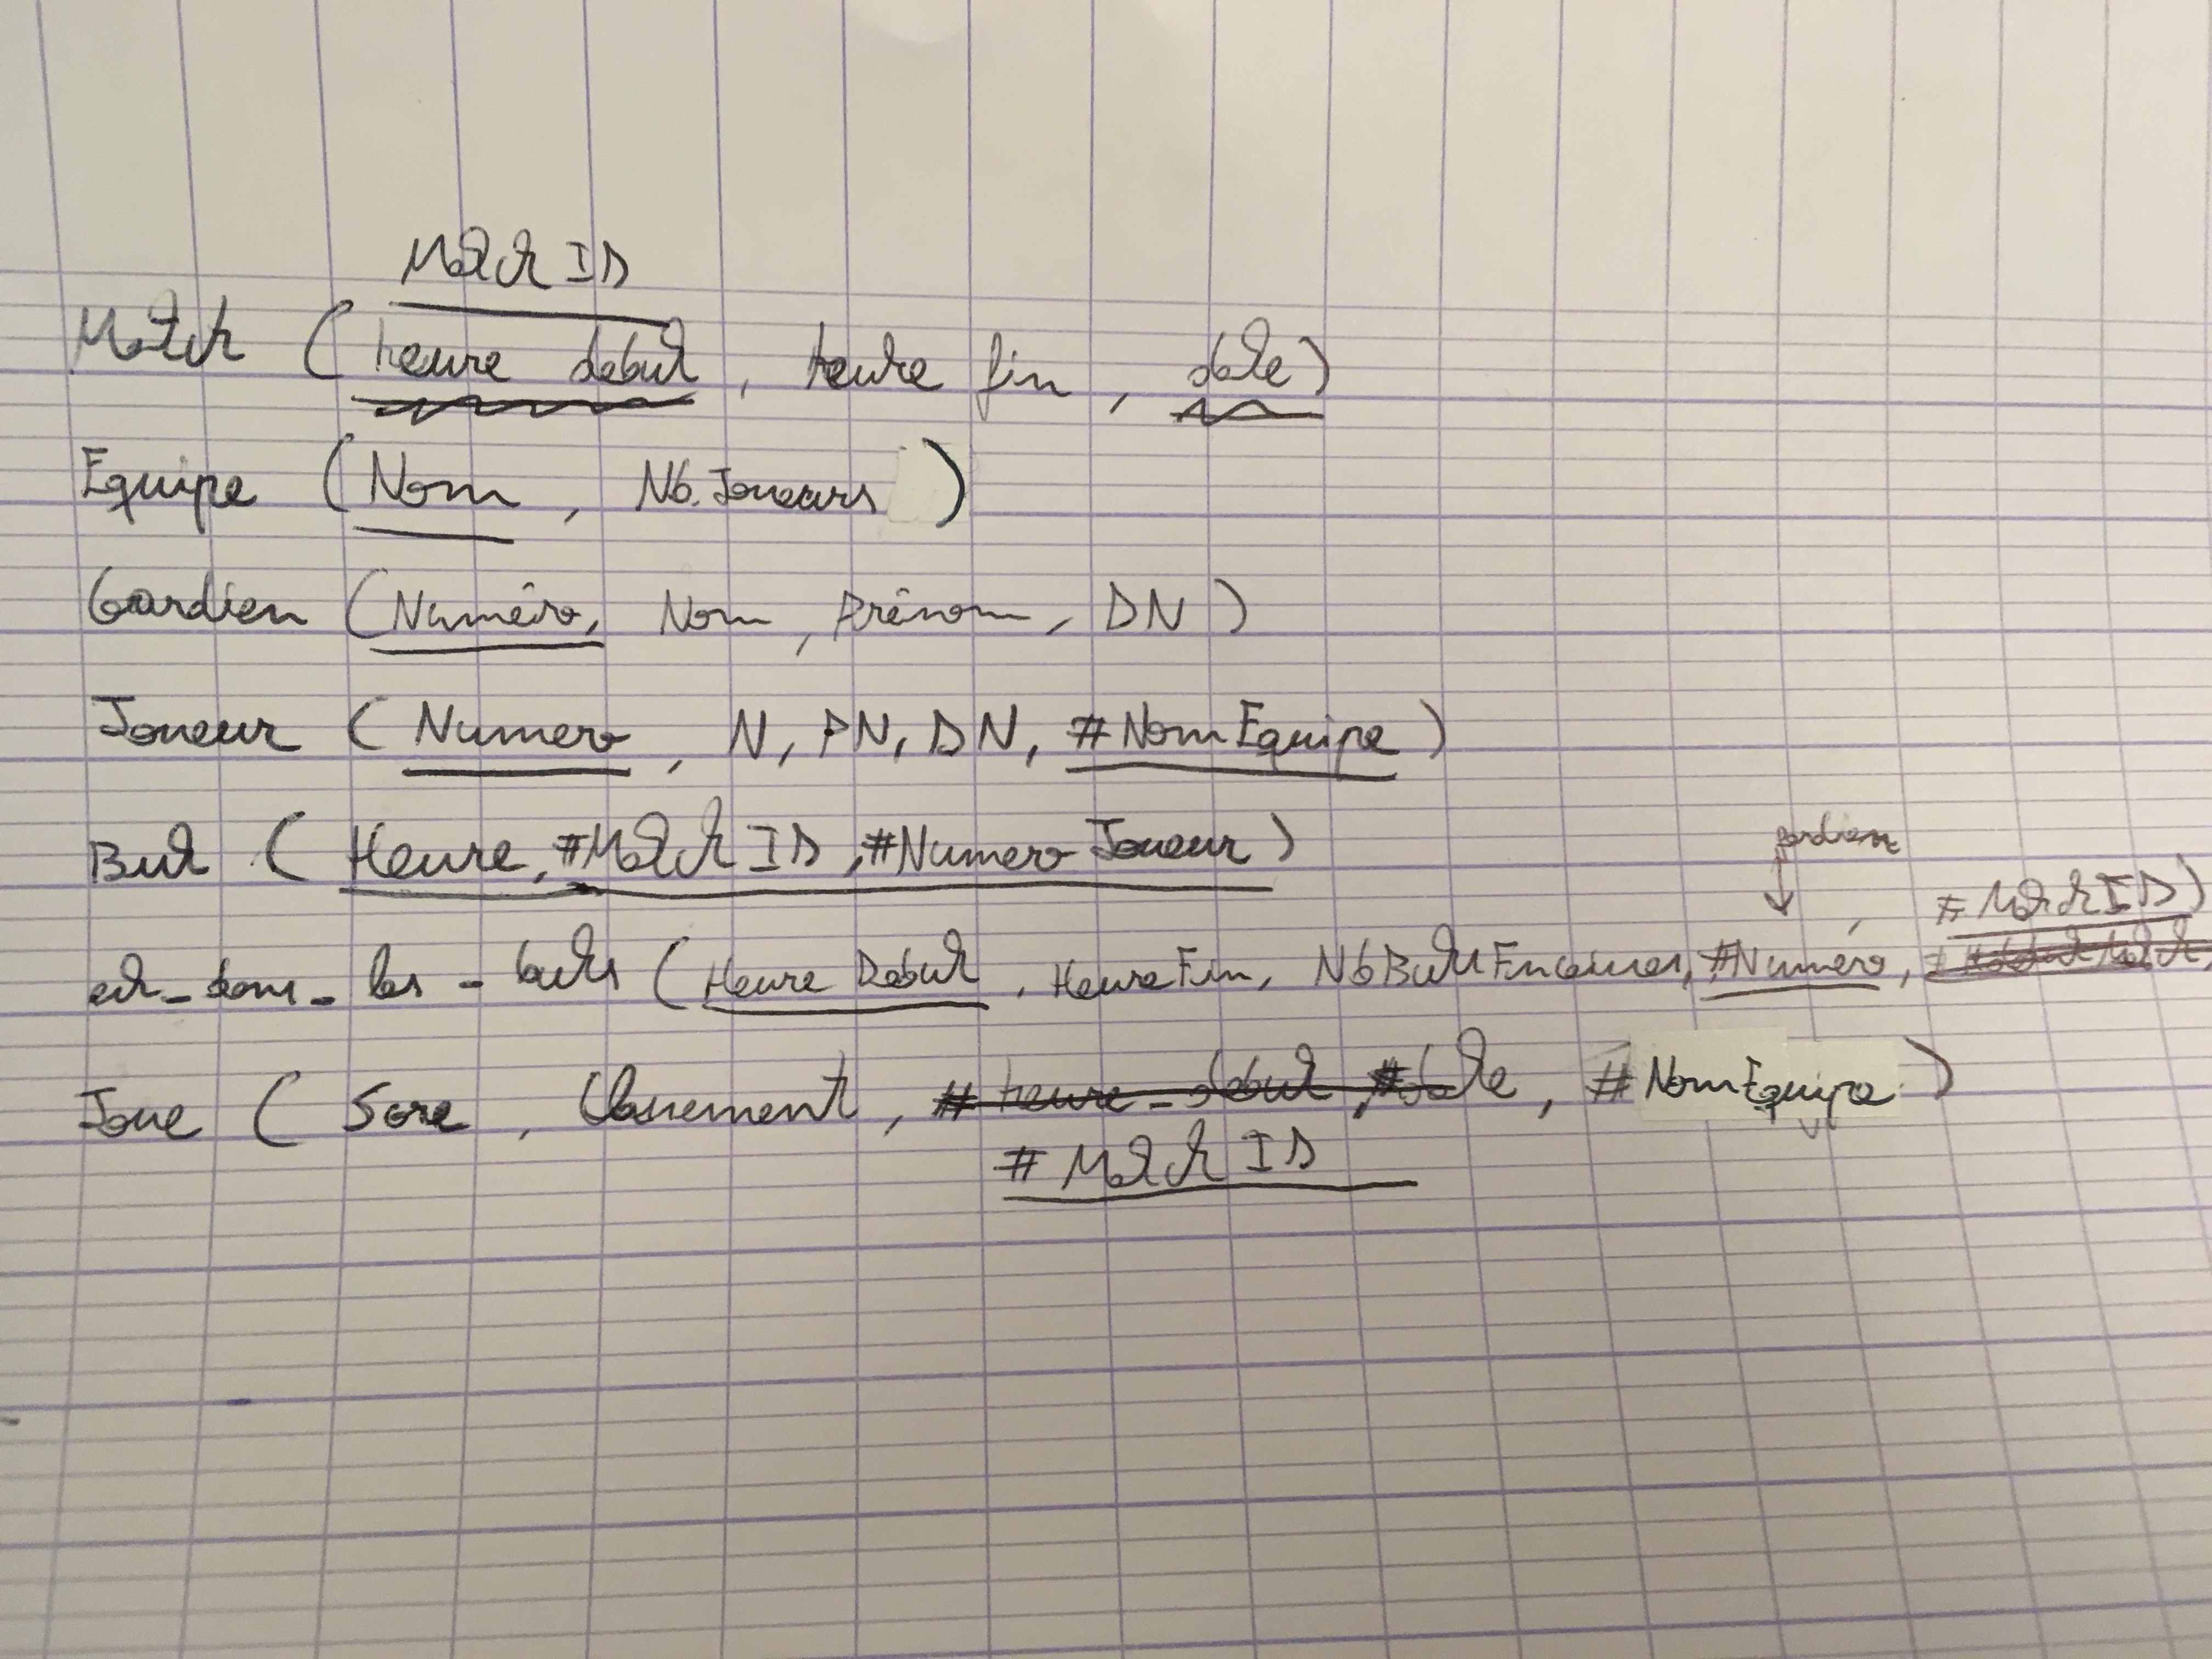 MatchID
Match (heure debut, heure fin, date)
Equipe (Nom, Nb.Joueurs)
Gardien (Numéro, Nom, Prénom, DN)
Joueur (Numero, N, PN, DN, #NomEquipe)
But (Heure, #MatchID, #NumeroJoueur)
gardien
#MatchID)
est_dans_les_buts (Heure Debut, HeureFin, NbButsEncaisses, #Numéro,
Joue (Score, Classement, #heure_debut, #date, #NomEquipe)
#MatchID